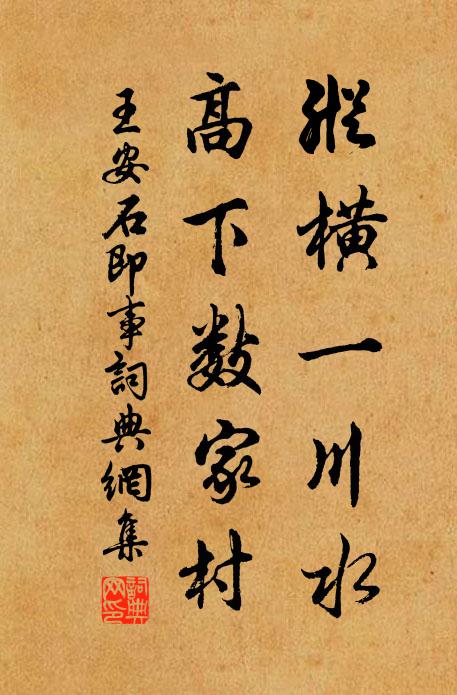 縱橫一川水
高下數家村
王安石即事詞典網集
詞典网印